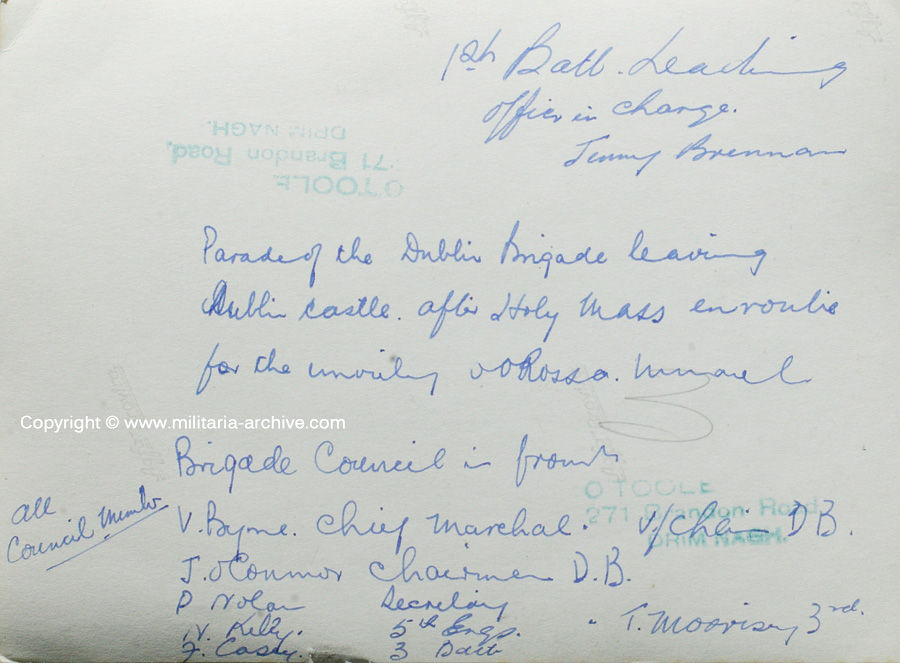 1st Batt. Leading
officer in charge.
Jimmy Brennan
O TOOLE
271 Brandon Road,
DRIMNAGH.
Parade of the Dublin Brigade leaving
Dublin castle. after Holy Mass enroute
for the unveiling O'Rossa.
Copyright © www.militaria-archive.com
Brigade Council in front
All
Council Member
O TOOLE
271 Brandon Road,
DRIMNAGH.
V. Byrne. Chief Marchal. V/Chair D.B.
J. O'Connor Chairman D.B.
P Nolan Secretary
N. Kelly. 5th Engs. T. Moorisey 3rd.
F. Casey. 3 Batt